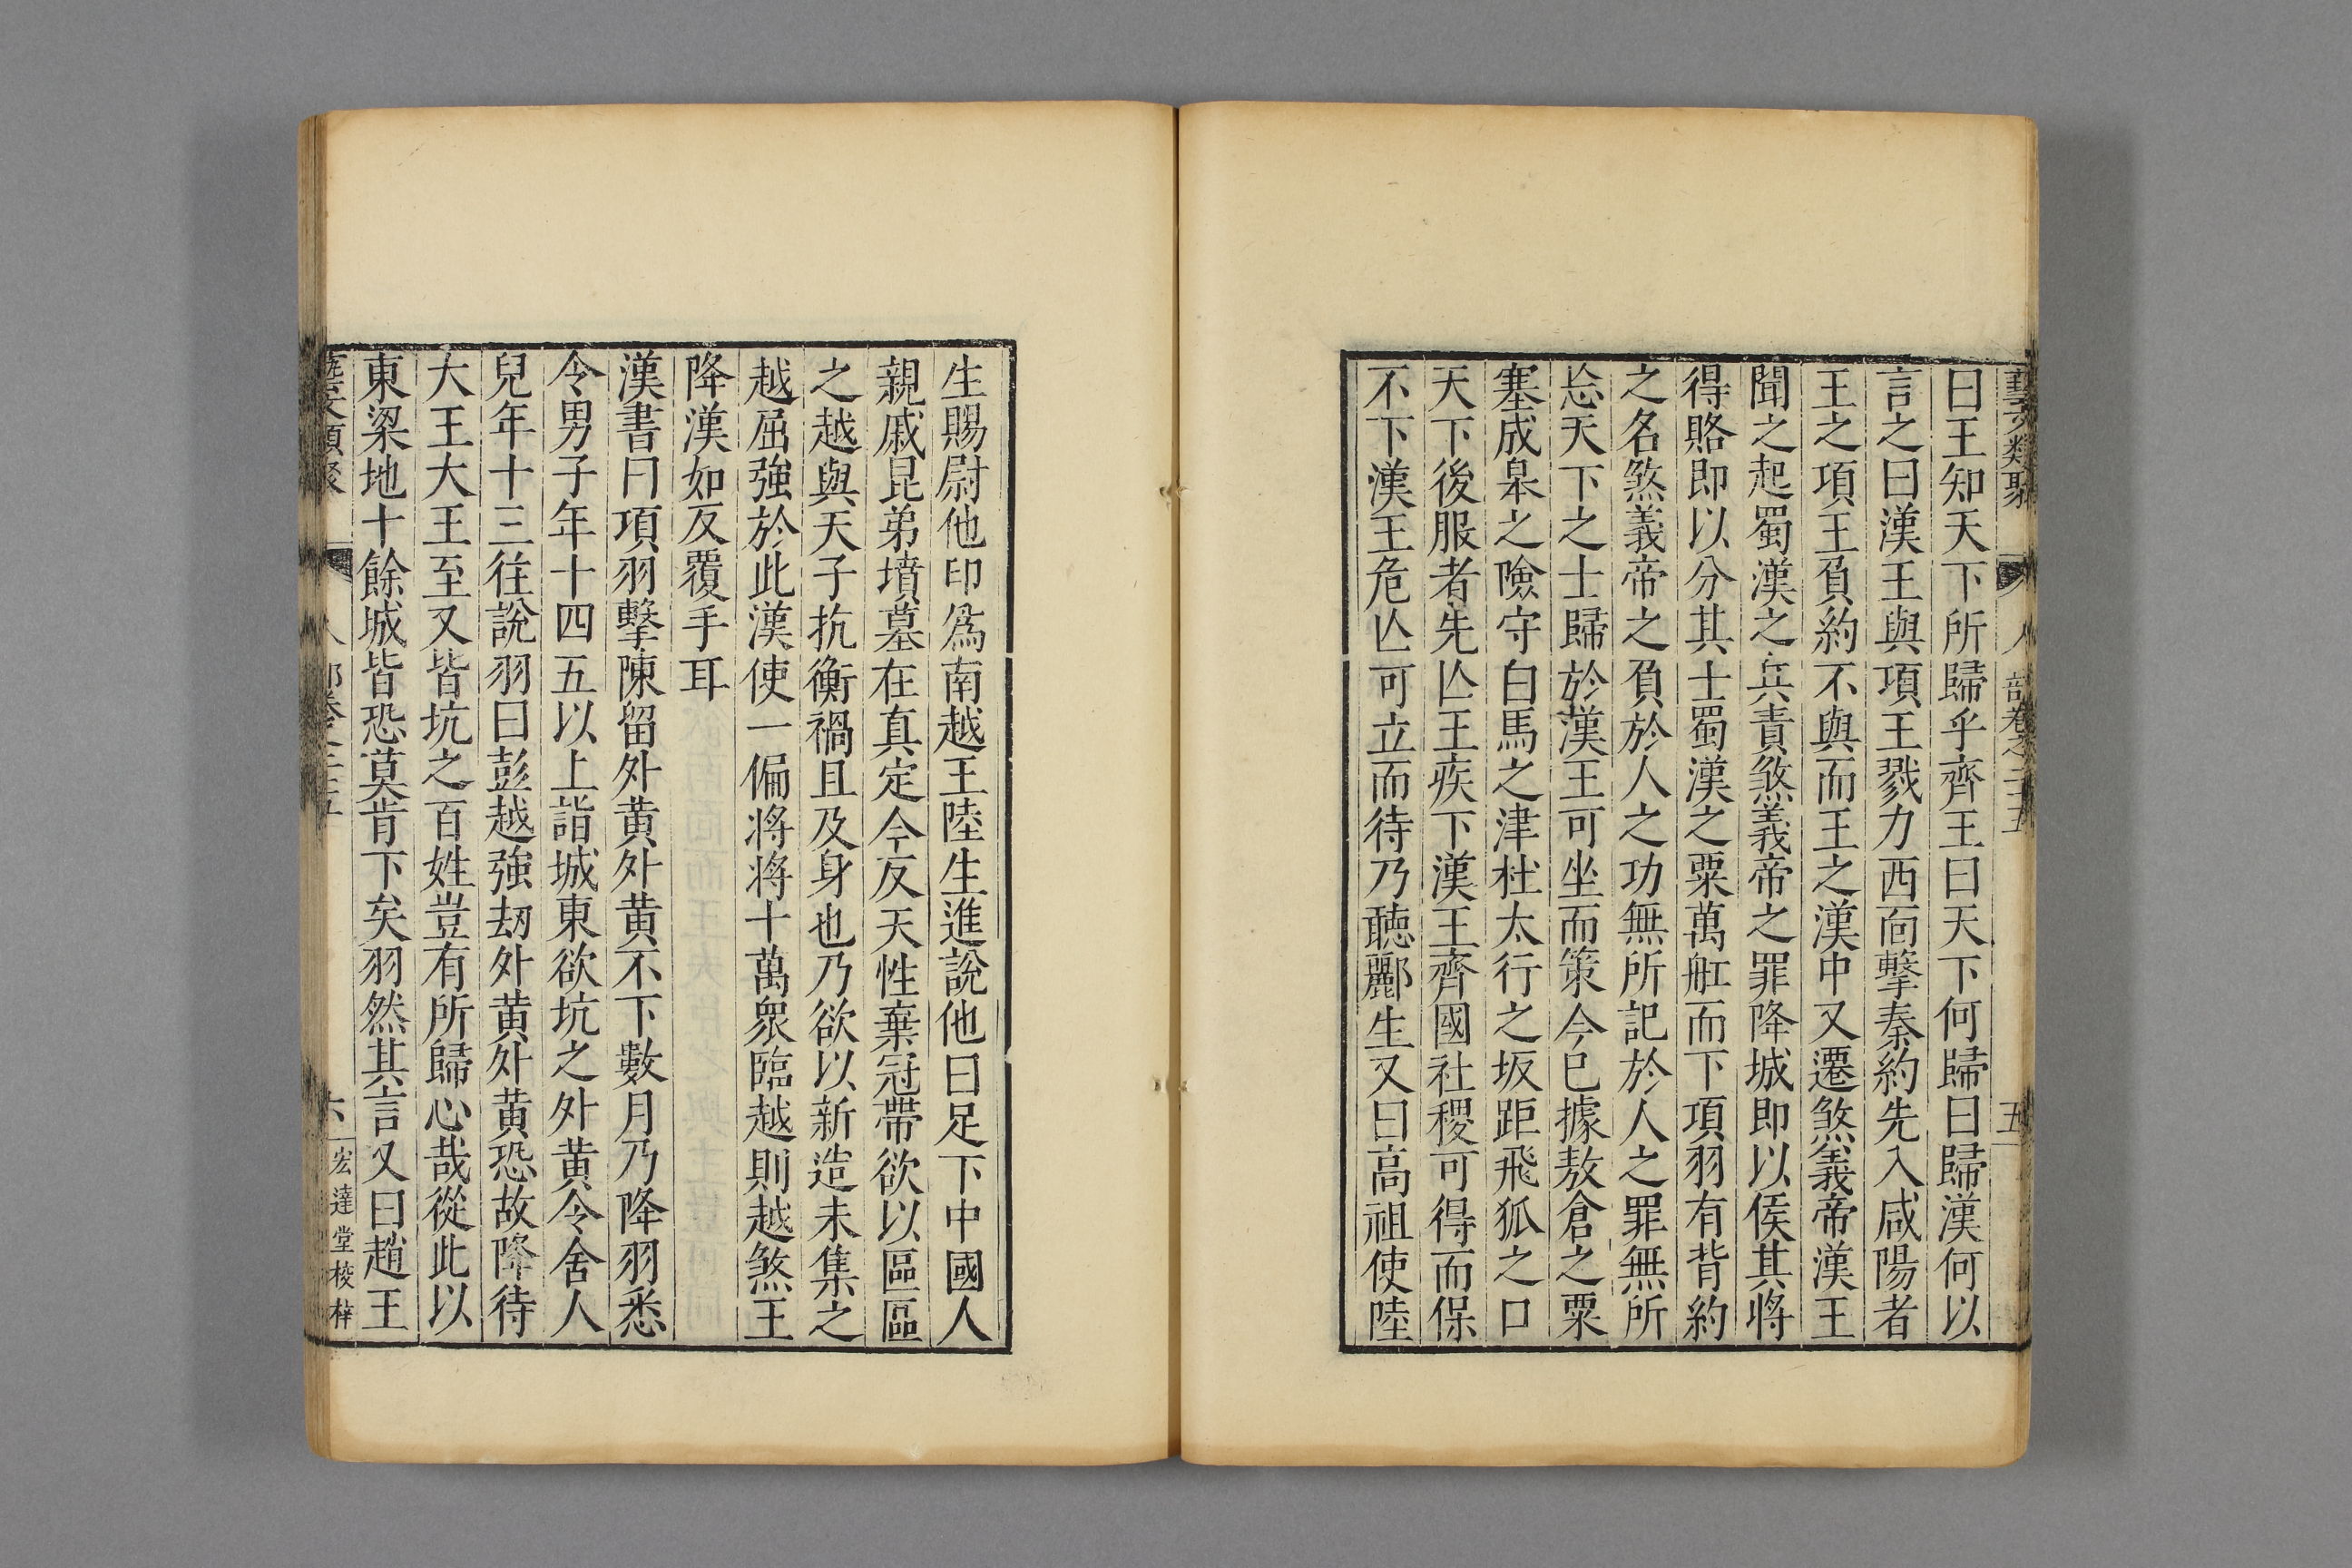 藝文類聚 人部卷之二十五 五
曰王知天下所歸乎齊王曰天下何歸曰歸漢何以
言之曰漢王與項王戮力西面擊秦約先入咸陽者
王之項王負約不與而王之漢中又遷煞義帝漢王
聞之起蜀漢之兵責煞義帝之罪降城即以侯其將
得賂即以分其士蜀漢之粟萬舡而下項羽有背約
之名煞義帝之負於人之功無所記於人之罪無所
忘天下之士歸於漢王可坐而策今已據敖倉之粟
塞成皋之險守白馬之津杜太行之坂距飛狐之口
天下後服者先亾王疾下漢王齊國社稷可得而保
不下漢王危亾可立而待乃聽酈生又曰高祖使陸
生賜尉他印為南越王陸生進說他曰足下中國人
親戚昆弟墳墓在真定今反天性棄冠帶欲以區區
之越與天子抗衡禍且及身也乃欲以新造未集之
越屈強於此漢使一偏將將十萬衆臨越則越煞王
降漢如反覆手耳
漢書曰項羽擊陳留外黃外黃不下數月乃降羽悉
令男子年十四五以上詣城東欲坑之外黃令舍人
兒年十三往說羽曰彭越強刼外黃外黃恐故降待
大王大王至又皆坑之百姓豈有所歸心哉從此以
東梁地十餘城皆恐莫肯下矣羽然其言又曰趙王
藝文類聚 人部卷之二十五 六 宏達堂校梓